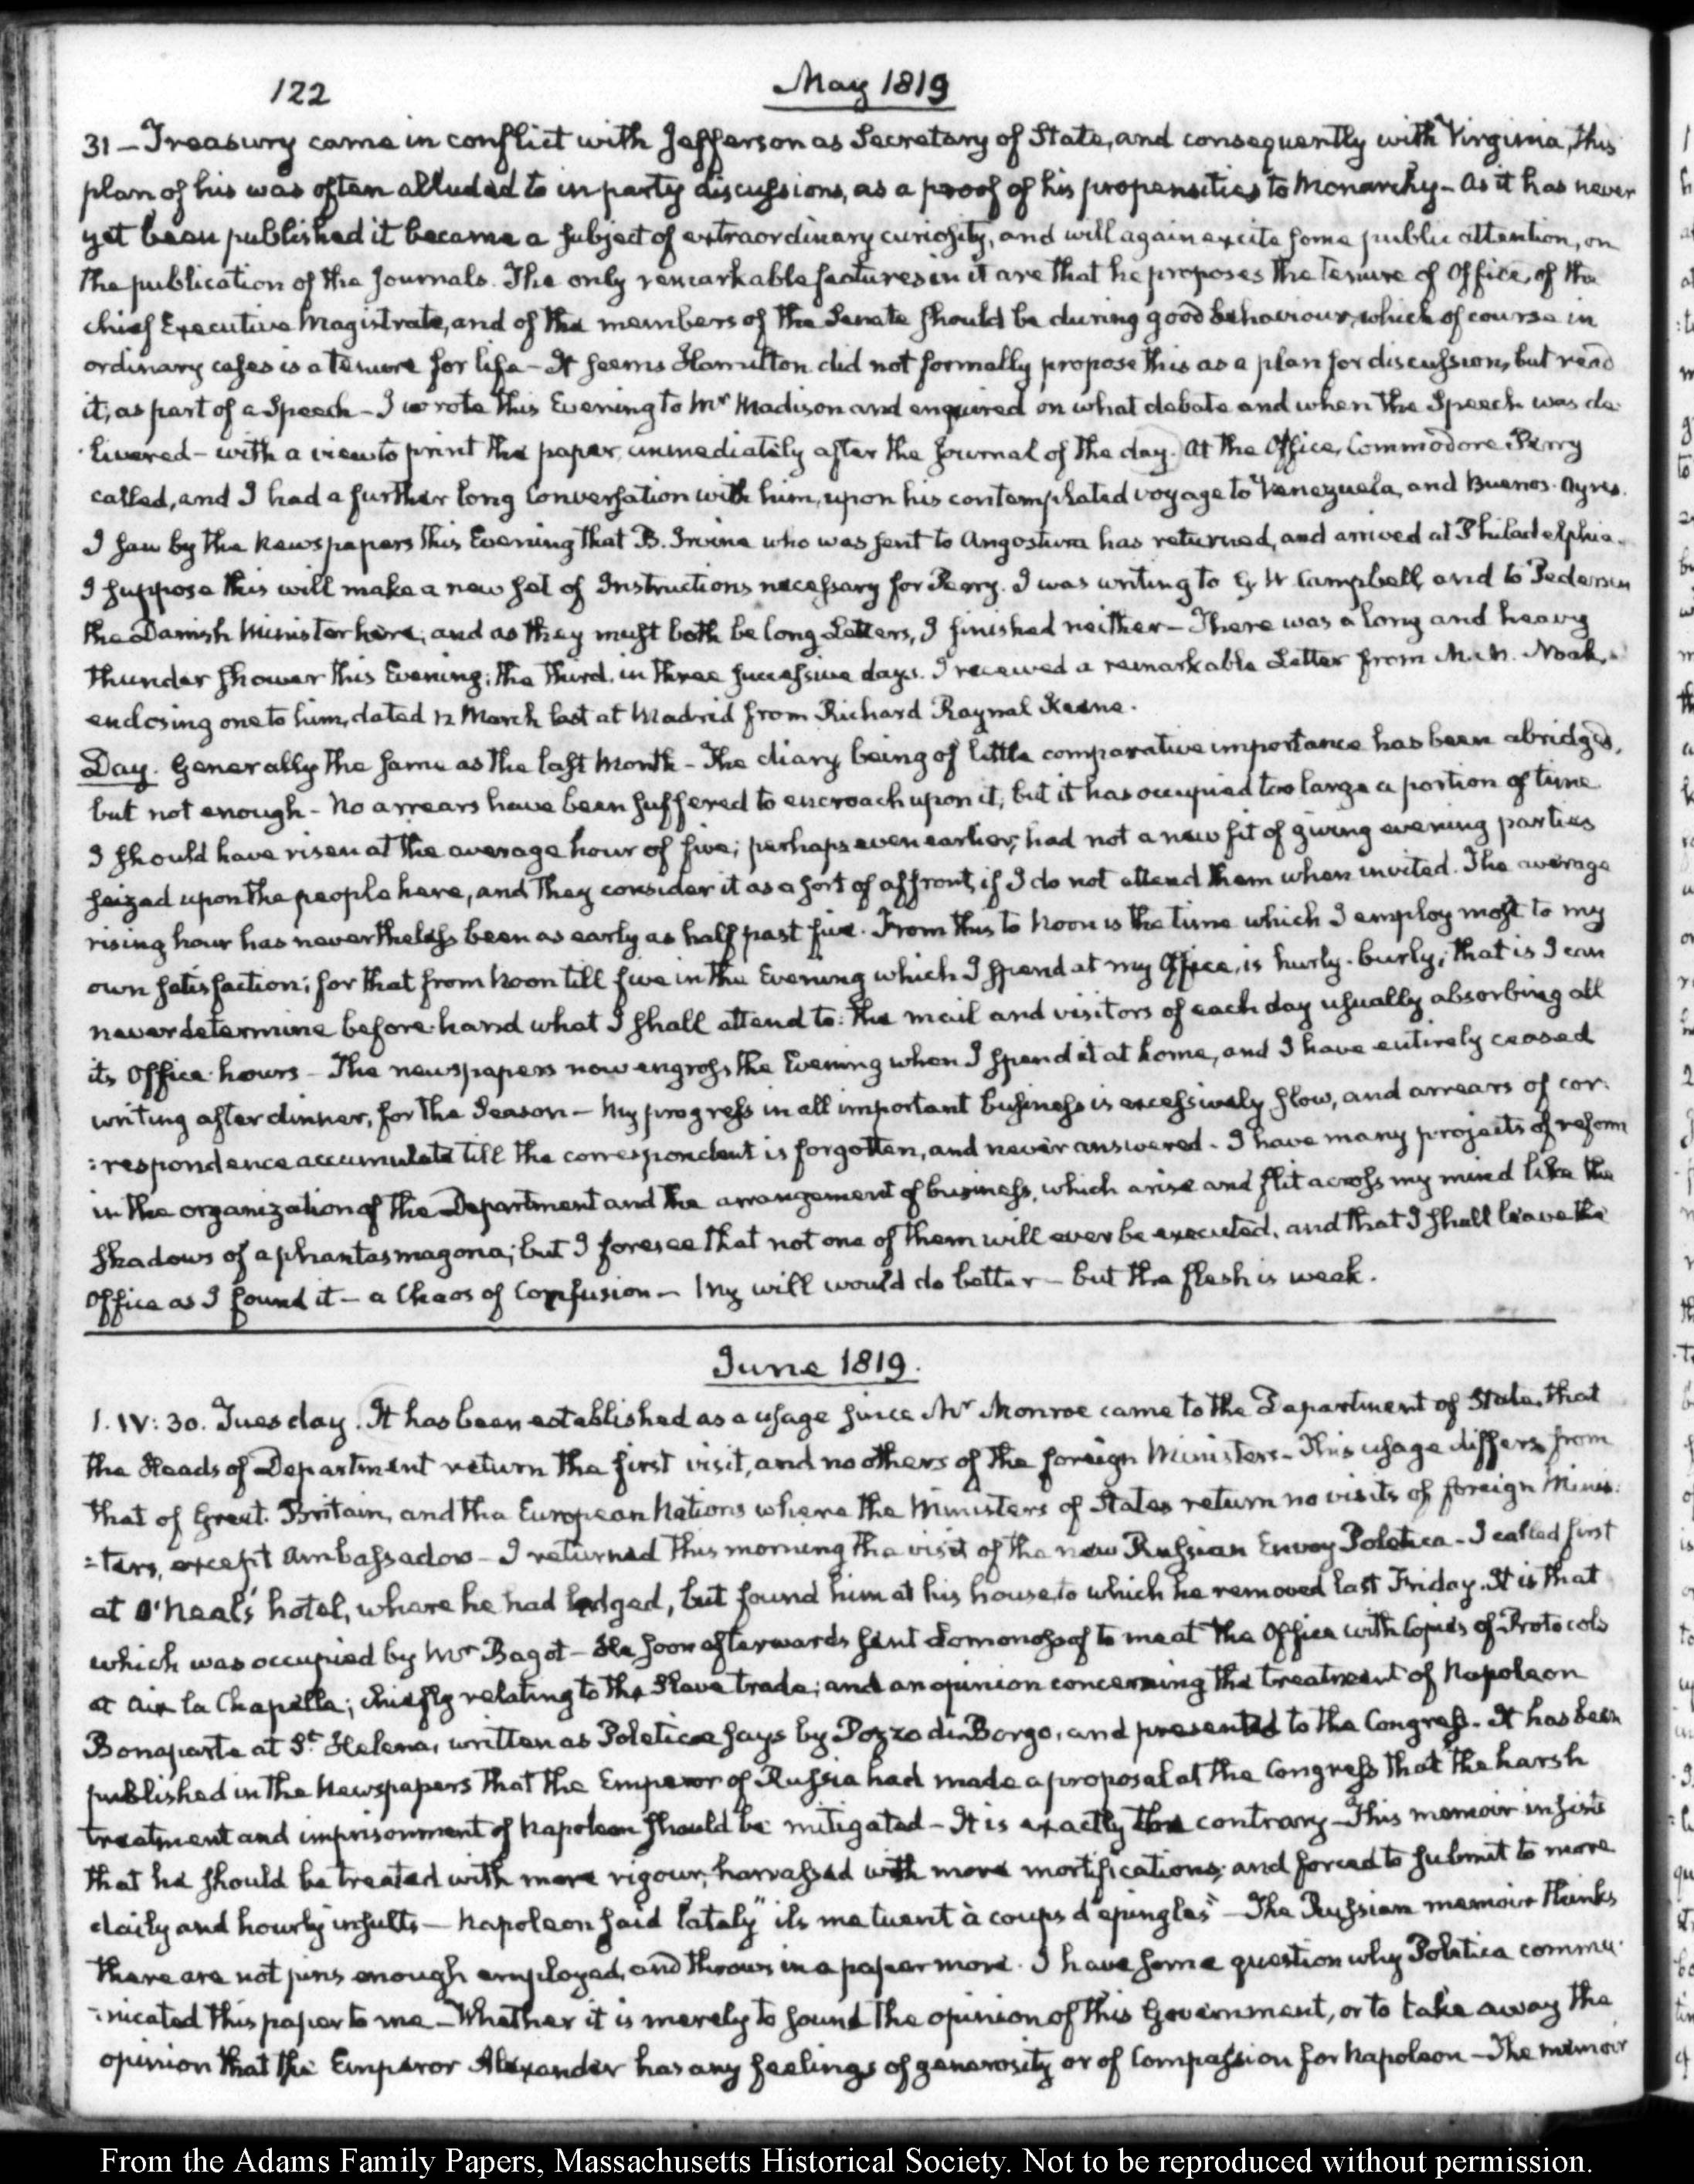 122
May 1819
31 – Treasury came in conflict with Jefferson as Secretary of State, and consequently with Virginia, this
plan of his was often alluded to in party discussions, as a proof of his propensities to Monarchy – As it has never
yet been published it became a subject of extraordinary curiosity, and will again excite some public attention, on
the publication of the Journals. The only remarkable features in it are that he proposes the tenure of Office, of the
chief Executive Magistrate, and of the members of the Senate should be during good behaviour, which of course in
ordinary cases is a tenure for life – It seems Hamilton did not formally propose this as a plan for discussion, but read
it, as part of a Speech – I wrote this Evening to Mr Madison and enquired on what debate and when the Speech was de-
livered – with a view to print the paper, immediately after the Journal of the day. At the Office, Commodore Perry
called, and I had a further long Conversation with him, upon his contemplated voyage to Venezuela, and Buenos-Ayres.
I saw by the Newspapers this Evening that B. Irvine who was sent to Angostura has returned, and arrived at Philadelphia.
I suppose this will make a new set of Instructions necessary for Perry. I was writing to G W Campbell, and to Pedersen
the Danish Minister here; and as they must both be long Letters, I finished neither – There was a long and heavy
thunder shower this Evening; the third, in three successive days. I received a remarkable Letter from M. M. Noah,
enclosing one to him, dated 12 March last at Madrid from Richard Raynal Keene.
Day. Generally the same as the last Month – The diary being of little comparative importance has been abridged,
but not enough – No arrears have been suffered to encroach upon it; but it has occupied too large a portion of time
I should have risen at the average hour of five; perhaps even earlier, had not a new fit of giving evening parties
seized upon the people here, and they consider it as a sort of affront, if I do not attend them when invited. The average
rising hour has nevertheless been as early as half past five. From this to Noon is the time which I employ most to my
own satisfaction; for that from Noon till five in the Evening which I spend at my Office, is hurly-burly; that is I can
never determine before-hand what I shall attend to: the mail and visitors of each day usually absorbing all
its Office hours – The newspapers now engross the Evening when I spend it at home, and I have entirely ceased
writing after dinner, for the Season – My progress in all important business is excessively slow, and arrears of cor-
:respondence accumulate till the correspondent is forgotten, and never answered – I have many projects of reform
in the organization of the Department and the arrangement of business, which arise and flit across my mind like the
shadows of a phantasmagoria; but I foresee that not one of them will ever be executed, and that I shall leave the
Office as I found it – a Chaos of Confusion – My will would do better – but the flesh is weak.
June 1819.
1. IV: 30. Tuesday. It has been established as a usage since Mr Monroe came to the Department of State, that
the Heads of Department return the first visit, and no others of the foreign Ministers – This usage differs from
that of Great Britain, and the European Nations where the Ministers of State return no visits of foreign Minis:
=ters, except Ambassadors – I returned this morning the visit of the new Russian Envoy Poletica – I called first
at O'Neal's hotel, where he had lodged, but found him at his house, to which he removed last Friday. It is that
which was occupied by Mr Bagot – He soon afterwards sent Lomonossof to me at the Office with Copies of Protocols
at Aix la Chapelle; chiefly relating to the Slave trade; and an opinion concerning the treatment of Napoleon
Bonaparte at St Helena, written as Poletica says by Pozzo di Borgo, and presented to the Congress. It has been
published in the Newspapers that the Emperor of Russia had made a proposal at the Congress that the harsh
treatment and imprisonment of Napoleon should be mitigated – It is exactly the contrary – This memoir insists
that he should be treated with more rigour, harrassed with more mortifications, and forced to submit to more
daily and hourly insults – Napoleon said lately "ils me tuent à coups d'épingles" – The Russian memoir thinks
there are not pins enough employed, and throws in a paper more. I have some question why Poletica commu-
:nicated this paper to me – Whether it is merely to sound the opinion of this Government, or to take away the
opinion that the Emperor Alexander has any feelings of generosity or of Compassion for Napoleon – The memoir
From the Adams Family Papers, Massachusetts Historical Society. Not to be reproduced without permission.